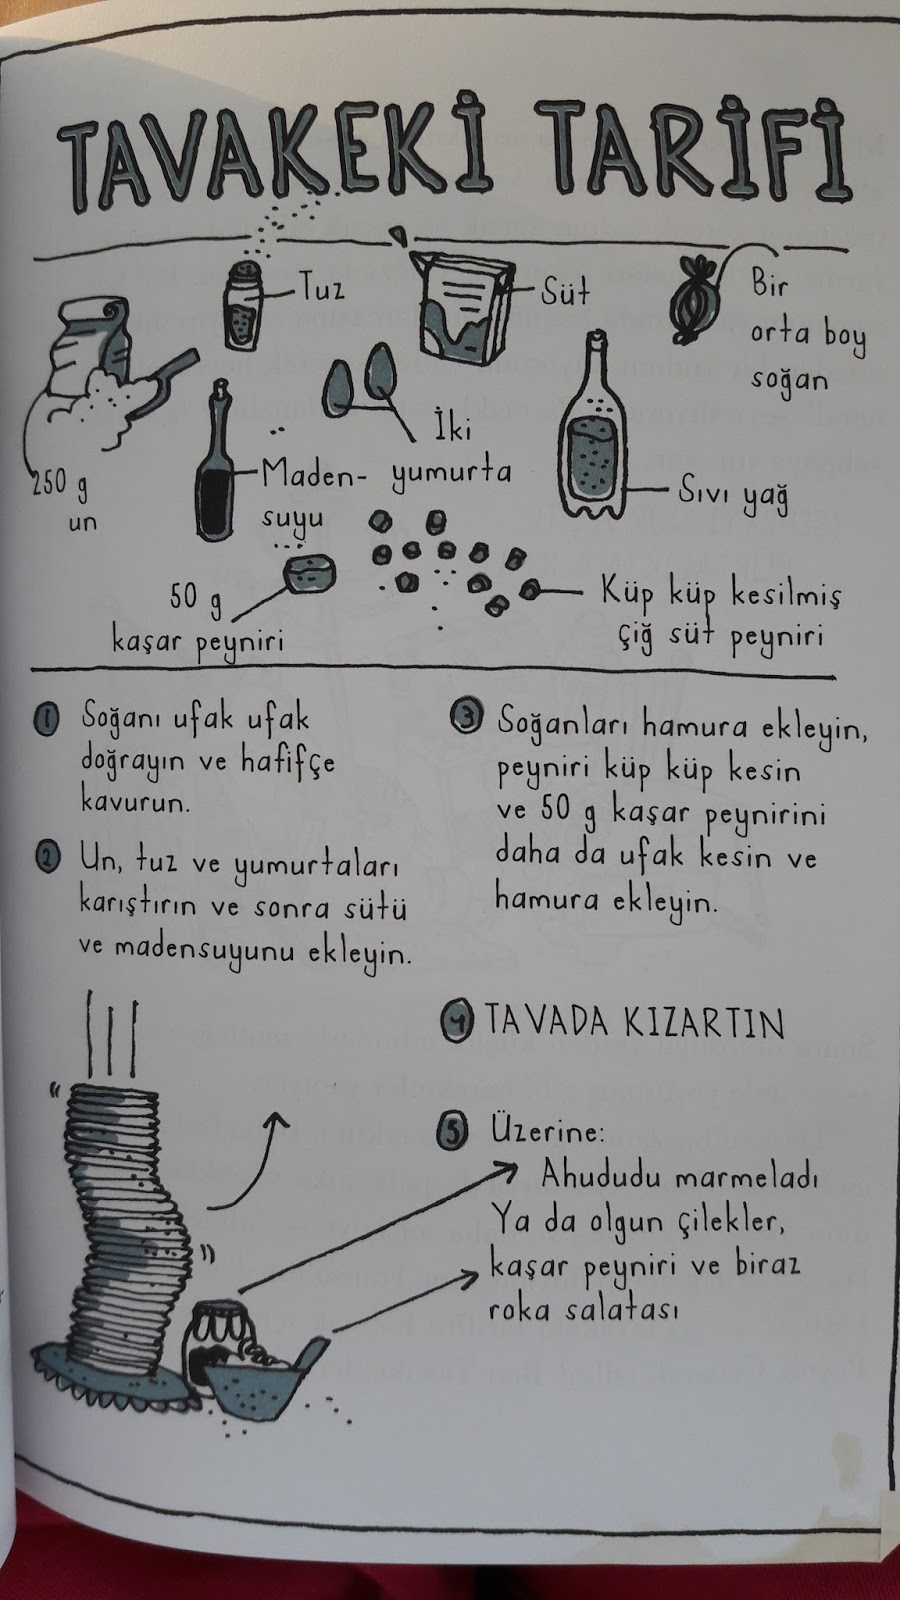 TAVAKEKİ TARİFİ
Tuz
Süt
Bir
orta boy
soğan
250 g
un
Maden-
suyu
İki
yumurta
Sıvı yağ
50 g
kaşar peyniri
Küp küp kesilmiş
çiğ süt peyniri
1 Soğanı ufak ufak
doğrayın ve hafifçe
kavurun.
2 Un, tuz ve yumurtaları
karıştırın ve sonra sütü
ve madensuyunu ekleyin.
3 Soğanları hamura ekleyin,
peyniri küp küp kesin
ve 50 g kaşar peynirini
daha da ufak kesin ve
hamura ekleyin.
4 TAVADA KIZARTIN
5 Üzerine:
Ahududu marmeladı
Ya da olgun çilekler,
kaşar peyniri ve biraz
roka salatası